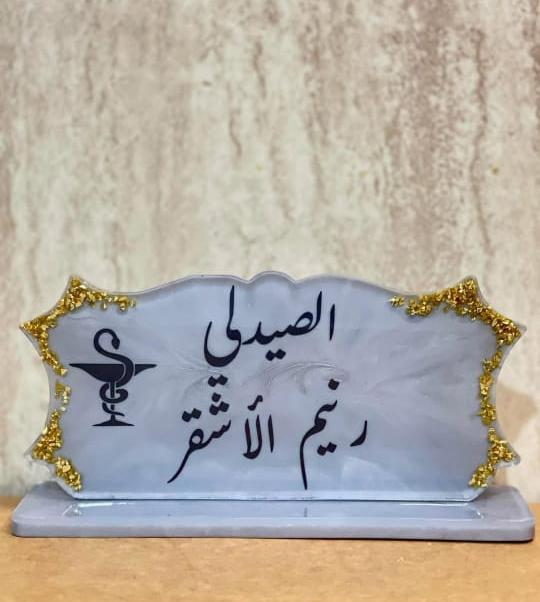 الصيدلي
رنيم الأشقر